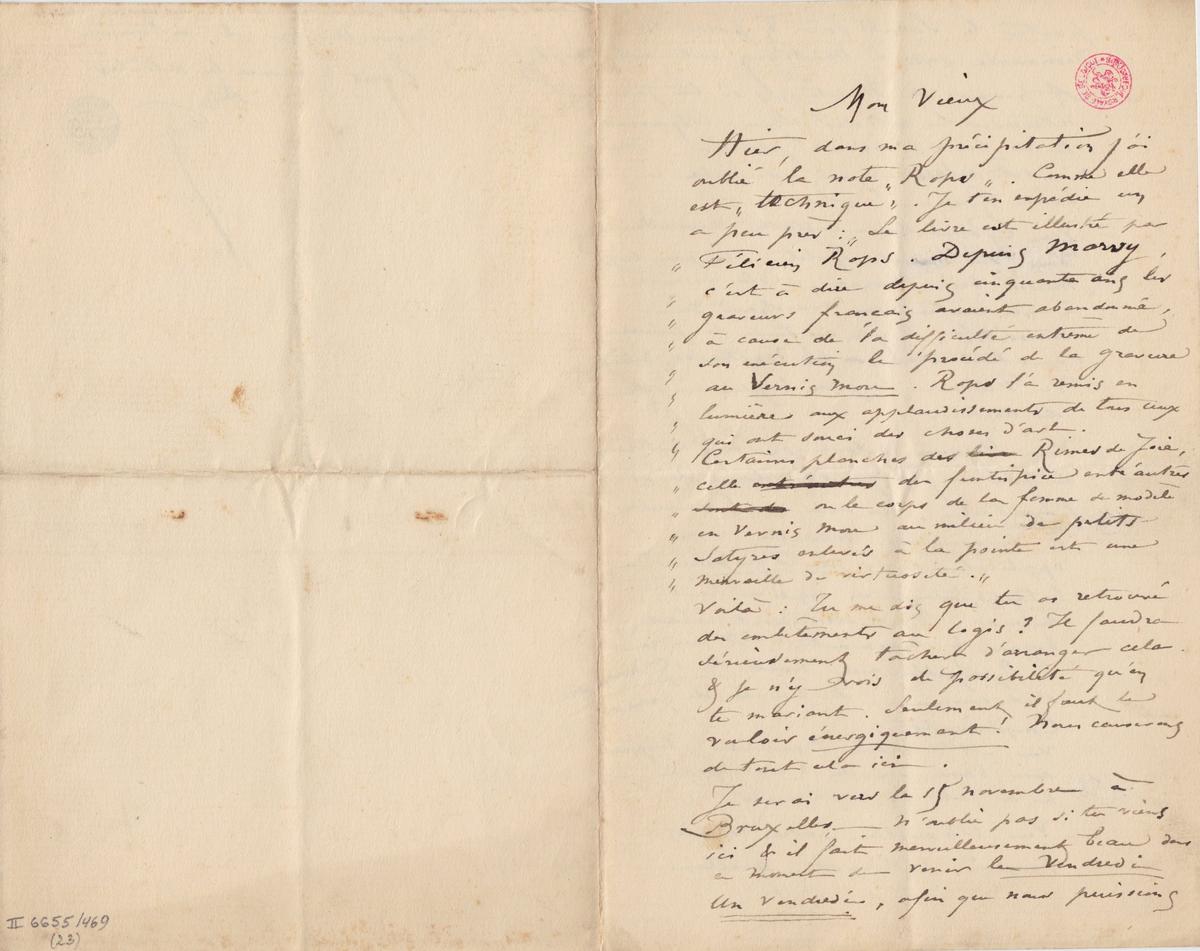 Mon Vieux
Hier, dans ma précipitation j'ai
oublié la note „Rops„. Comme elle
est „technique„. Je t'en expédie un
a peu près : „Le livre est illustré par
„ Félicien Rops. Depuis Marvy,
c'est à dire depuis cinquante ans les
„ graveurs français avaient abandonné,
„ à cause de la difficulté extrême de
„ son exécution le procédé de la gravure
„ au Vernis mou. Rops l'a remis en
„ lumière aux applaudissements de tous ceux
„ qui ont souci des choses d'art.
„ Certaines planches des Rimes de Joie,
„ celle du frontispice entr'autres
„ ou le corps de la femme se modèle
„ en Vernis mou au milieu de petits
„ Satyres enlevés à la pointe est une
„ merveille de virtuosité.„
Voilà : Tu me dis que tu as retrouvé
des embêtements au logis ? Il faudra
sérieusement tâcher d'arranger cela.
& je n'y vois de possibilité qu'en
te mariant. Seulement il faut le
vouloir énergiquement ! Nous causerons
de tout cela ici.
Je serai vers le 15 novembre à
Bruxelles — N'oublie pas si tu viens
ici & il fait merveilleusement beau dans
ce moment de venir le Vendredi
Un Vendredi, afin que nous puissions
II 6655/469
(23)